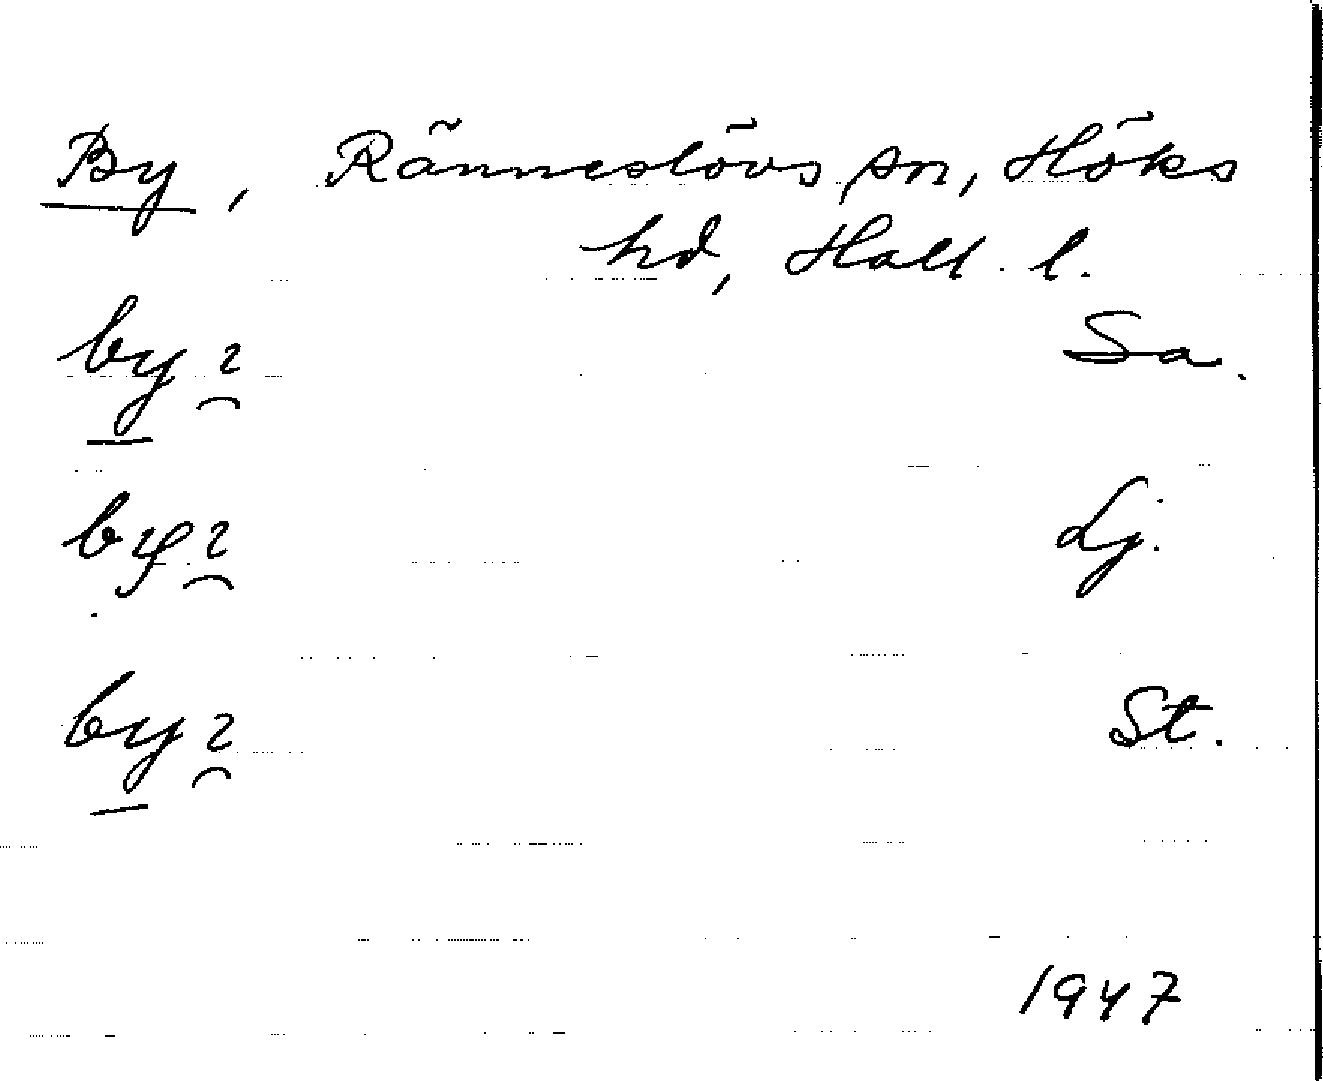 By, Ränneslövs sn, Höks
hd, Hall. l.
by Sa.
by Lj.
by St.
1947